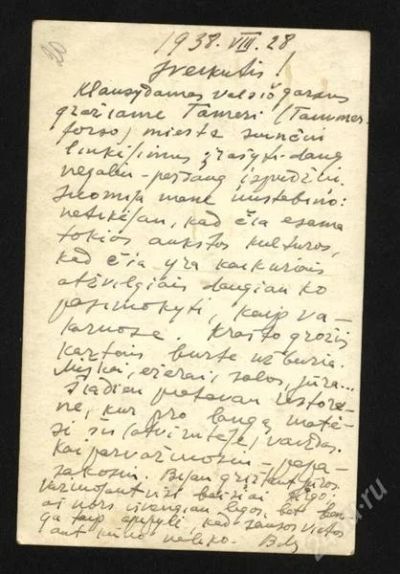 1938. VIII. 28
Sveikutis!
Klausydamas valsio garsus
gražiame Tameri (Tammer-
forso) mieste siunčiu
linkėjimus įrašyti daug
negaliu - perdaug įspūdžių.
Suomija mane nustebino:
netikėjau, kad čia esama
tokios aukštos kultūros,
kad čia yra kaikuriais
atžvilgiais daugiau ko
pasimokyti, kaip va-
karuose. Krašto grožis
kartais burte užburia.
Miškai, ežerai, salos, jūra...
Šiądien pietavau restora-
ne, kur pro langą matė-
si šis (atvirutėje) vaizdas.
Kai parvažiuosiu papa-
sakosiu. Bijau grįžtant jūros
važiuojant visi baisiai
ai nors vivangiau legos, bet
ga taip apipylė, kad sausos vietos
ant manęs neliko.